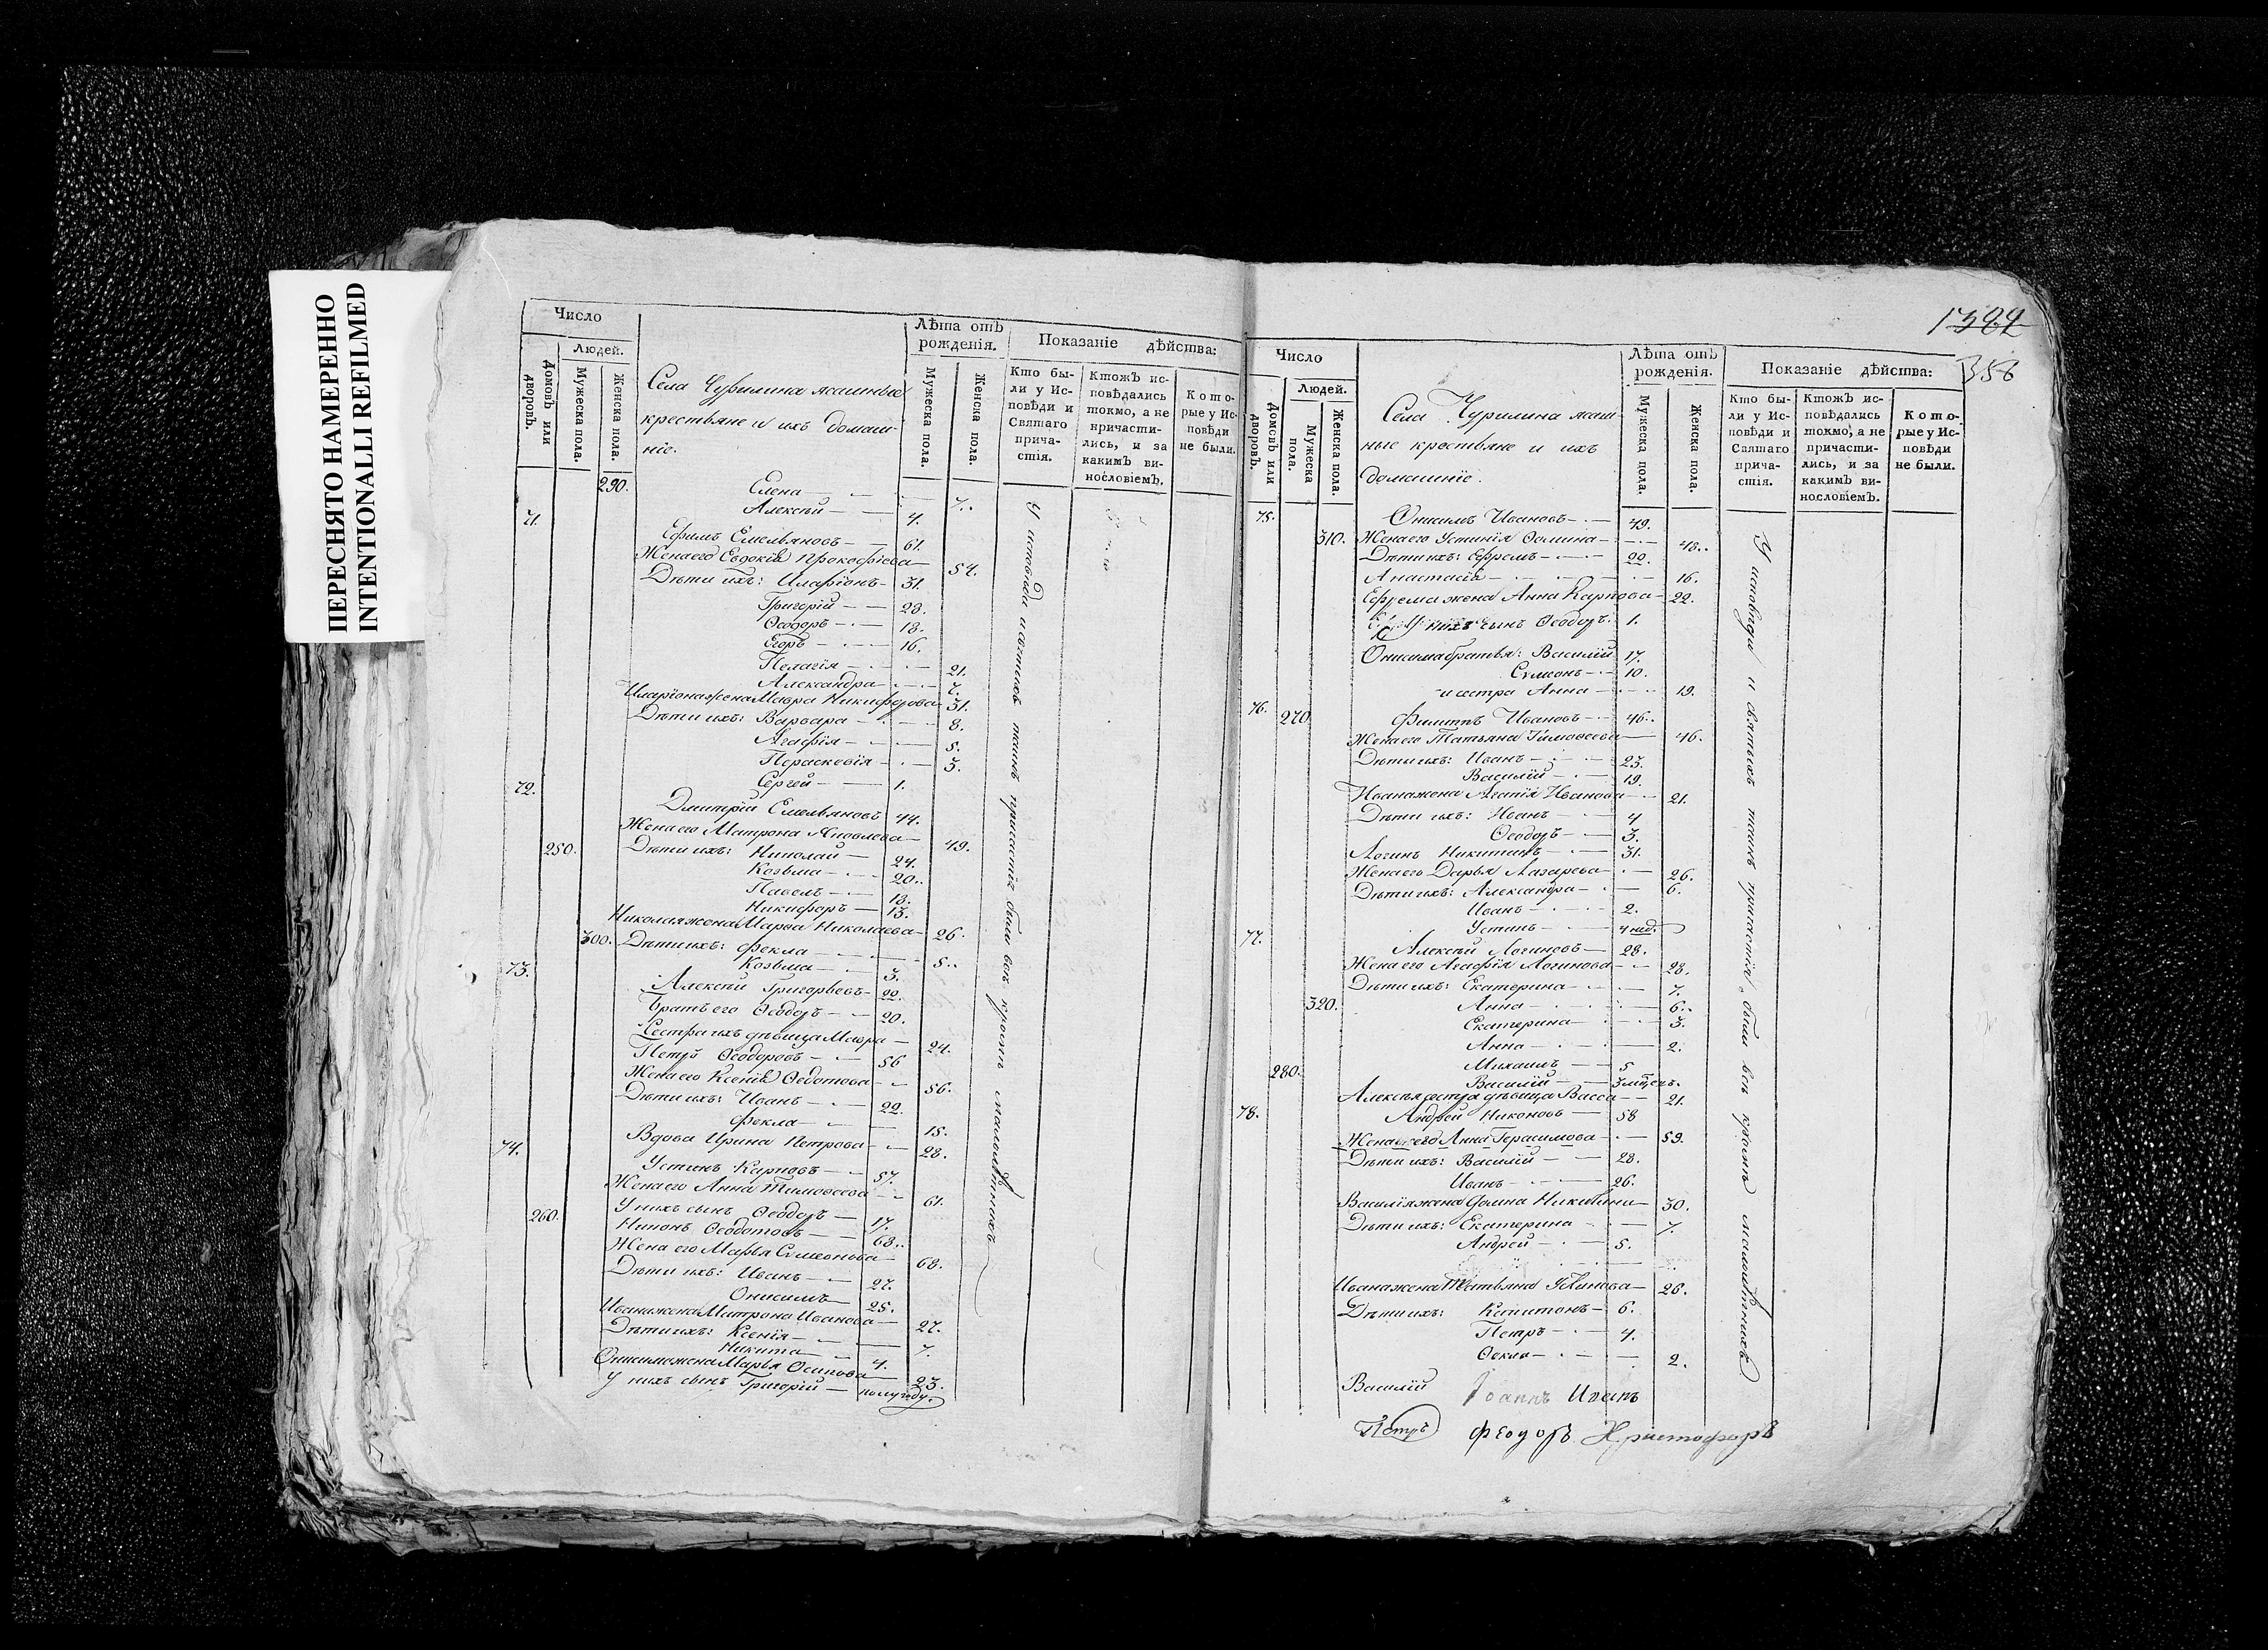 ПЕРЕСНЯТО НАМЕРЕННО
INTENTIONALLI REFILMED
Число
Людей.
Домовъ или дворовъ.
Мужеска пола.
Женска пола.
Села Чурилина ясашныя
крестьяне и ихъ домаш-
ніе.
Лѣта отъ рожденія.
Мужеска пола.
Женска пола.
Показаніе дѣйства:
Кто бы-
ли у Ис-
повѣди и
Святаго
прича-
стія.
Ктожъ ис-
повѣдались
токмо, а не
причасти-
лись, и за
какимъ ви-
нословіемъ.
Кото-
рые у Ис-
повѣди
не были.
290. Елена 7.
Алексѣй 4.
71. Ефимъ Емельяновъ 61.
Жена его Евдокія Прокофіева 54.
Дѣти ихъ: Иларіонъ 31.
Григорій 28.
Ѳеодоръ 18.
Егоръ 16.
Пелагія 21.
Александра 7.
Иларіона жена Мавра Никифорова 31.
Дѣти ихъ: Варвара 8.
Агафія 5.
Пераскевія 3.
Сергей 1.
72. Дмитрій Емельяновъ 44.
Жена его Матрона Яковлева 49.
250. Дѣти ихъ: Николай 24.
Козьма 20.
Павелъ 18.
Никифоръ 13.
Николая жена Марья Николаева 26.
300. Дѣти ихъ: Фекла 5.
Козьма 3.
73. Алексѣй Григорьевъ 22.
Братъ его Ѳеодоръ 20.
Сестра ихъ дѣвица Мавра 24.
Петръ Ѳеодоровъ 56
Жена его Ксенія Ѳедотова 56.
Дѣти ихъ: Иванъ 22.
Фекла 15.
Вдова Ирина Петрова 28.
74. Устинъ Карповъ 57.
Жена его Анна Тимоѳеева 61.
У нихъ сынъ Ѳеодоръ 17.
260. Никонъ Ѳеодотовъ 68.
Жена его Марья Сумеонова 68.
Дѣти ихъ: Иванъ 27.
Онисимъ 25.
Ивана жена Матрона Иванова 27.
Дѣти ихъ: Ксенія 7.
Никита 4.
Онисима жена Марья Осипова 23.
У нихъ сынъ Григорій полугоду.
У исповѣди и святыхъ таинъ причастія были всѣ кромѣ малолѣтныхъ
1394
358
Число
Людей.
Домовъ или дворовъ.
Мужеска пола.
Женска пола.
Села Чурилина ясаш-
ные крестьяне и ихъ
домашніе.
Лѣта отъ рожденія.
Мужеска пола.
Женска пола.
Показаніе дѣйства:
Кто бы-
ли у Ис-
повѣди и
Святаго
прича-
стія.
Ктожъ ис-
повѣдались
токмо, а не
причасти-
лись, и за
какимъ ви-
нословіемъ.
Кото-
рые у Ис-
повѣди
не были.
75. Онисимъ Ивановъ 49.
310. Жена его Устинія Ѳомина 48.
Дѣти ихъ: Ефремъ 22.
Анастасія 16.
Ефрема жена Анна Карпова 22.
У нихъ сынъ Ѳеодоръ 1.
Онисима братья: Василій 17.
Сумеонъ 10.
и сестра Анна 19.
76. 270. Филиппъ Ивановъ 46.
Жена его Татьяна Тимоѳеева 46.
Дѣти ихъ: Иванъ 23.
Василій 19.
Ивана жена Агапія Иванова 21.
Дѣти ихъ: Иванъ 4
Ѳеодоръ 3.
Логинъ Никитинъ 31.
Жена его Дарья Лазарева 26.
Дѣти ихъ: Александра 6.
Иванъ 2.
Устинъ 4 нед.
77. Алексѣй Логиновъ 28.
Жена его Агафія Логинова 28.
Дѣти ихъ: Екатерина 7.
320. Анна 6.
Екатерина 3.
Анна 2.
Михаилъ 5
280. Василій 3 мѣсяцъ.
Алексѣя сестра дѣвица Васса 21.
78. Андрей Никоновъ 58
Жена его Анна Герасимова 59.
Дѣти ихъ: Василій 28.
Иванъ 26.
Василія жена Фомина Никитина 30.
Дѣти ихъ: Екатерина 7.
Андрей 5.
Ивана жена Татьяна 26.
Дѣти ихъ: Капитонъ 6.
Петръ 4.
Ѳекла 2.
У исповѣди и святыхъ таинъ причастія были всѣ кромѣ малолѣтныхъ
Василій Іоаннъ Иванъ
Петръ Феодоръ Христофоръ